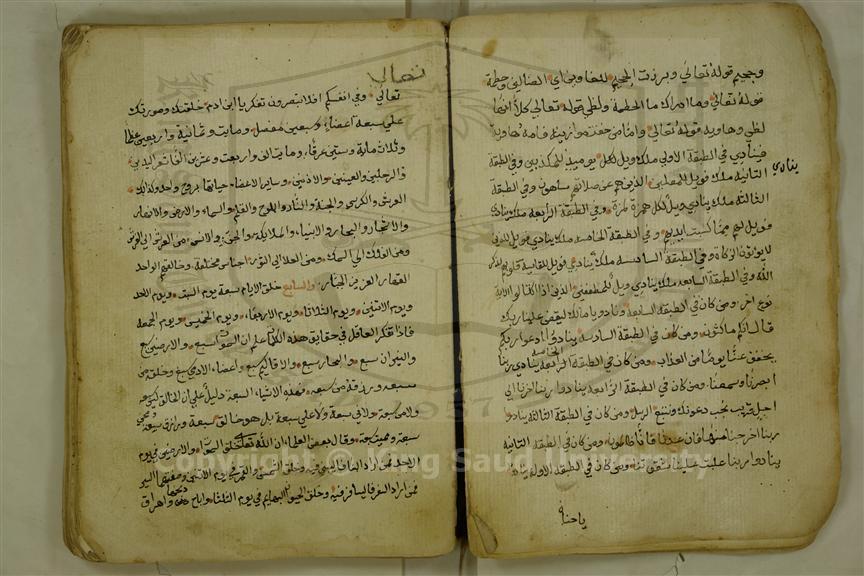 وجحيم قوله تعالي وبرزت الجحيم للغاوين اي الضالين وحطمة
قوله تعالي وما ادراك ما الحطمة ولظي قوله تعالي كلا انها
لظي وهاوية قوله تعالي واما من خفت موازينه فامه هاوية
فينادي في الطبقة الاولي ملك ويل لكل يوميذ للمكذبين وفي الطبقة
الثانية ملك فويل للمصلين الذين هم عن صلاتهم ساهون وفي الطبقة
ينادي
الثالثة ملك ينادي ويل لكل همزة لمزة وفي الطبقة الرابعة ملك ينادي
فويل لهم مما كسبت ايديهم وفي الطبقة الخامسة ملك ينادي فويل للذين
لا يوتون الزكاة وفي الطبقة السادسة ملك ينادي فويل للقاسية قلوبهم
الله وفي الطبقة السابعة ملك ينادي ويل للمطففين الذين اذا اكتالوا الاية
نوع اخر ومن كان في الطبقة السابعة ونادوا يا مالك ليقض علينا ربك
قال انكم ماكثون ومن كان في الطبقة السادسة ينادي ادعوا ربكم
يخفف عنا يوما من العذاب ومن كان في الطبقة الخامسة ينادي ربنا
ابصرنا وسمعنا ومن كان في الطبقة الرابعة ينادوا ربنا اخرنا الي
اجل قريب نجب دعوتك ونتبع الرسل ومن كان في الطبقة الثالثة ينادوا
ربنا اخرجنا منها فان عدنا فانا ظالمون ومن كان في الطبقة الثانية
ينادوا ربنا غلبت علينا شقوتنا ومن كان في الطبقة الاولي ينادي
يا حنان
تعالي وفي انفسكم افلا تبصرون تفكر يا ابن ادم خلقتك وصورتك
علي سبعة اعضاء وسبعين مفصل ومايت وثمانية واربعين عظما
وثلاث ماية وستين عرقا ومايت الف واربعة وعشرين الف
الرجلين والعينين والاذنين وساير الاعضاء حياتها بروح واحد وكذلك
العرش والكرسي والجنة والنار واللوح والقلم والسماء والارض والانهار
والاشجار والبحار والانبياء والملايكة والجن والانس من العرش الي الفرش
ومن العلا الي الثري اجناس مختلفة وخالقهم الواحد
القهار العزيز الجبار والسابع خلق الايام سبعة يوم السبت ويوم الاحد
ويوم الاثنين ويوم الثلاثا ويوم الاربعا ويوم الخميس ويوم الجمعة
فاذا تفكر العاقل في حقايق هذه علم ان السموات سبع والارضين سبع
والنيران سبع والبحار سبع والاقاليم سبع واعضاء الادمي سبع وخلق من
سبعة ورزقه من سبعة فهذه الاشياء السبعة دليل علي ان الخالق ليس
ولا من سبعة ولا في سبعة ولا علي سبعة بل هو خالق سبعة ورازق سبعة
سبعة ومميت سبعة وقال بعض العلماء ان الله تعالي خلق السموات والارضين في يوم
الاحد فمن اراد وخلق الشمس والقمر في يوم الاثنين وصفتهما السير
فمن اراد السفر فليسافر فيه وخلق البهايم في يوم الثلثا واباح واهراق
Copyright © King Saud University
1957